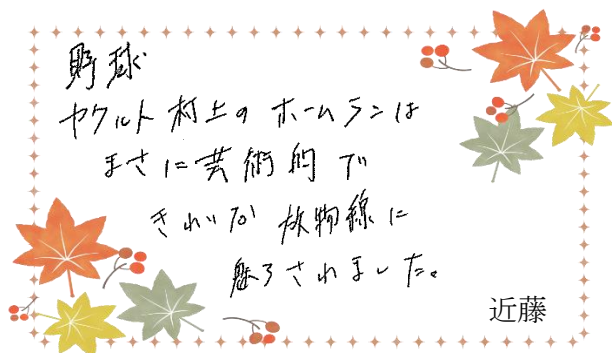 野球
ヤクルト村上のホームランは
まさに芸術的で
きれいな放物線に
魅了されました。
近藤